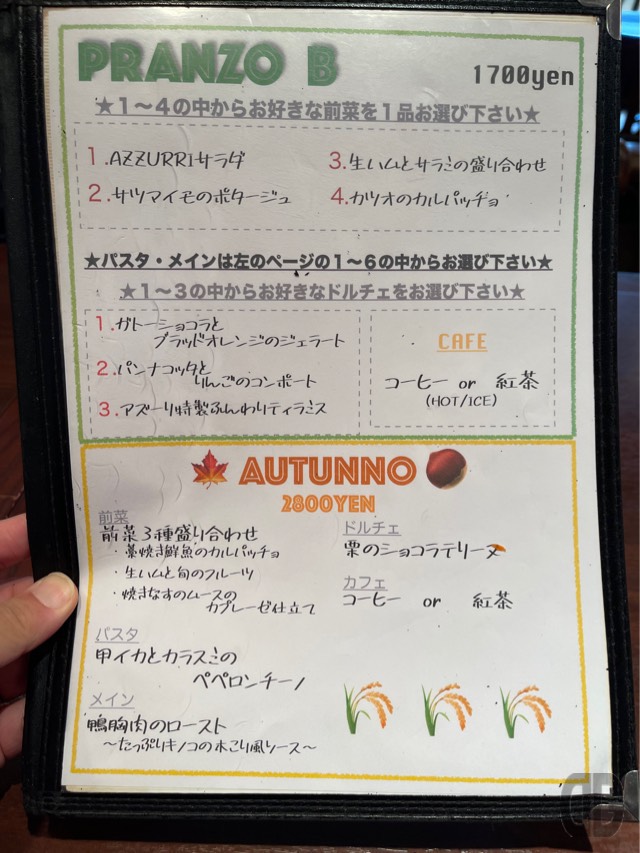 PRANZO B
1700yen
★1～4の中からお好きな前菜を1品お選び下さい★
1.AZZURRIサラダ
2.サツマイモのポタージュ
3.生ハムとサラミの盛り合わせ
4.カツオのカルパッチョ
★パスタ・メインは左のページの1～6の中からお選び下さい★
★1～3の中からお好きなドルチェをお選び下さい★
1.ガトーショコラと
ブラッドオレンジのジェラート
2.パンナコッタと
りんごのコンポート
3.アズーリ特製ふんわりティラミス
CAFE
コーヒー or 紅茶
(HOT/ICE)
AUTUNNO
2800YEN
前菜
前菜3種盛り合わせ
・藁焼き鮮魚のカルパッチョ
・生ハムと旬のフルーツ
・焼きなすのムースの
カプレーゼ仕立て
パスタ
甲イカとカラスミの
ペペロンチーノ
メイン
鴨胸肉のロースト
～たっぷりキノコの木こり風ソース～
ドルチェ
栗のショコラテリーヌ
カフェ
コーヒー or 紅茶